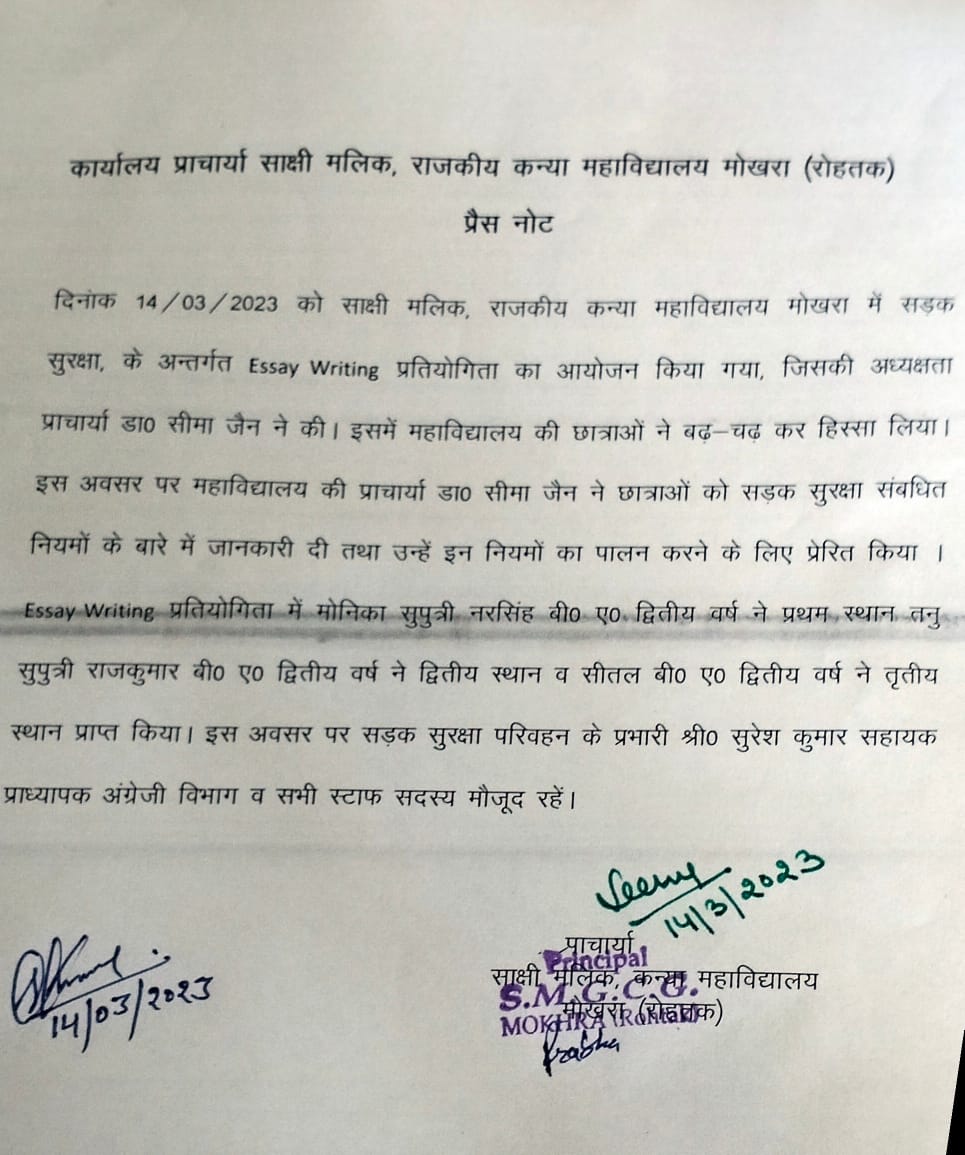 कार्यालय प्राचार्या साक्षी मलिक, राजकीय कन्या महाविद्यालय मोखरा (रोहतक)
प्रैस नोट
दिनांक 14/03/2023 को साक्षी मलिक, राजकीय कन्या महाविद्यालय मोखरा में सड़क
सुरक्षा, के अन्तर्गत Essay Writing प्रतियोगिता का आयोजन किया गया, जिसकी अध्यक्षता
प्राचार्या डा0 सीमा जैन ने की। इसमें महाविद्यालय की छात्राओं ने बढ़-चढ़ कर हिस्सा लिया।
इस अवसर पर महाविद्यालय की प्राचार्या डा0 सीमा जैन ने छात्राओं को सड़क सुरक्षा संबधित
नियमों के बारे में जानकारी दी तथा उन्हें इन नियमों का पालन करने के लिए प्रेरित किया ।
Essay Writing प्रतियोगिता में मोनिका सुपुत्री नरसिंह बी0 ए0 द्वितीय वर्ष ने प्रथम स्थान तनु
सुपुत्री राजकुमार बी0 ए0 द्वितीय वर्ष ने द्वितीय स्थान व सीतल बी0 ए0 द्वितीय वर्ष ने तृतीय
स्थान प्राप्त किया। इस अवसर पर सड़क सुरक्षा परिवहन के प्रभारी श्री0 सुरेश कुमार सहायक
प्राध्यापक अंग्रेजी विभाग व सभी स्टाफ सदस्य मौजूद रहें।
14/3/2023
प्राचार्या
Principal
साक्षी मलिक, कन्या महाविद्यालय
S.M.G.C.G.
मौखरा (रोहतक)
MOKHRA (Rohtak)
Prabha
14/03/2023